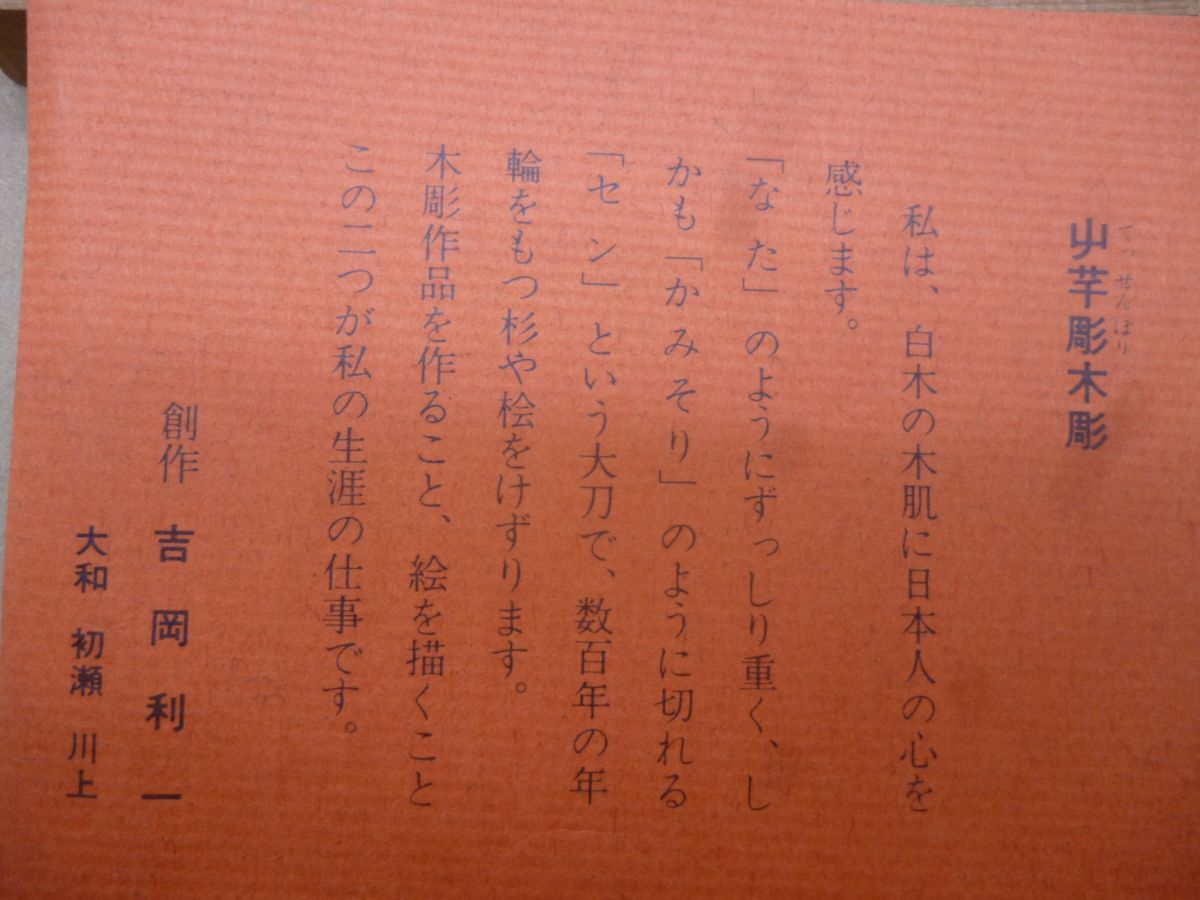 てっせんぼり
屮芊彫木彫
私は、白木の木肌に日本人の心を
感じます。
「なた」のようにずっしり重く、し
かも「かみそり」のように切れる
「セン」という大刀で、数百年の年
輪をもつ杉や桧をけずります。
木彫作品を作ること、絵を描くこと
この二つが私の生涯の仕事です。
創作 吉岡利一
大和 初瀬 川上